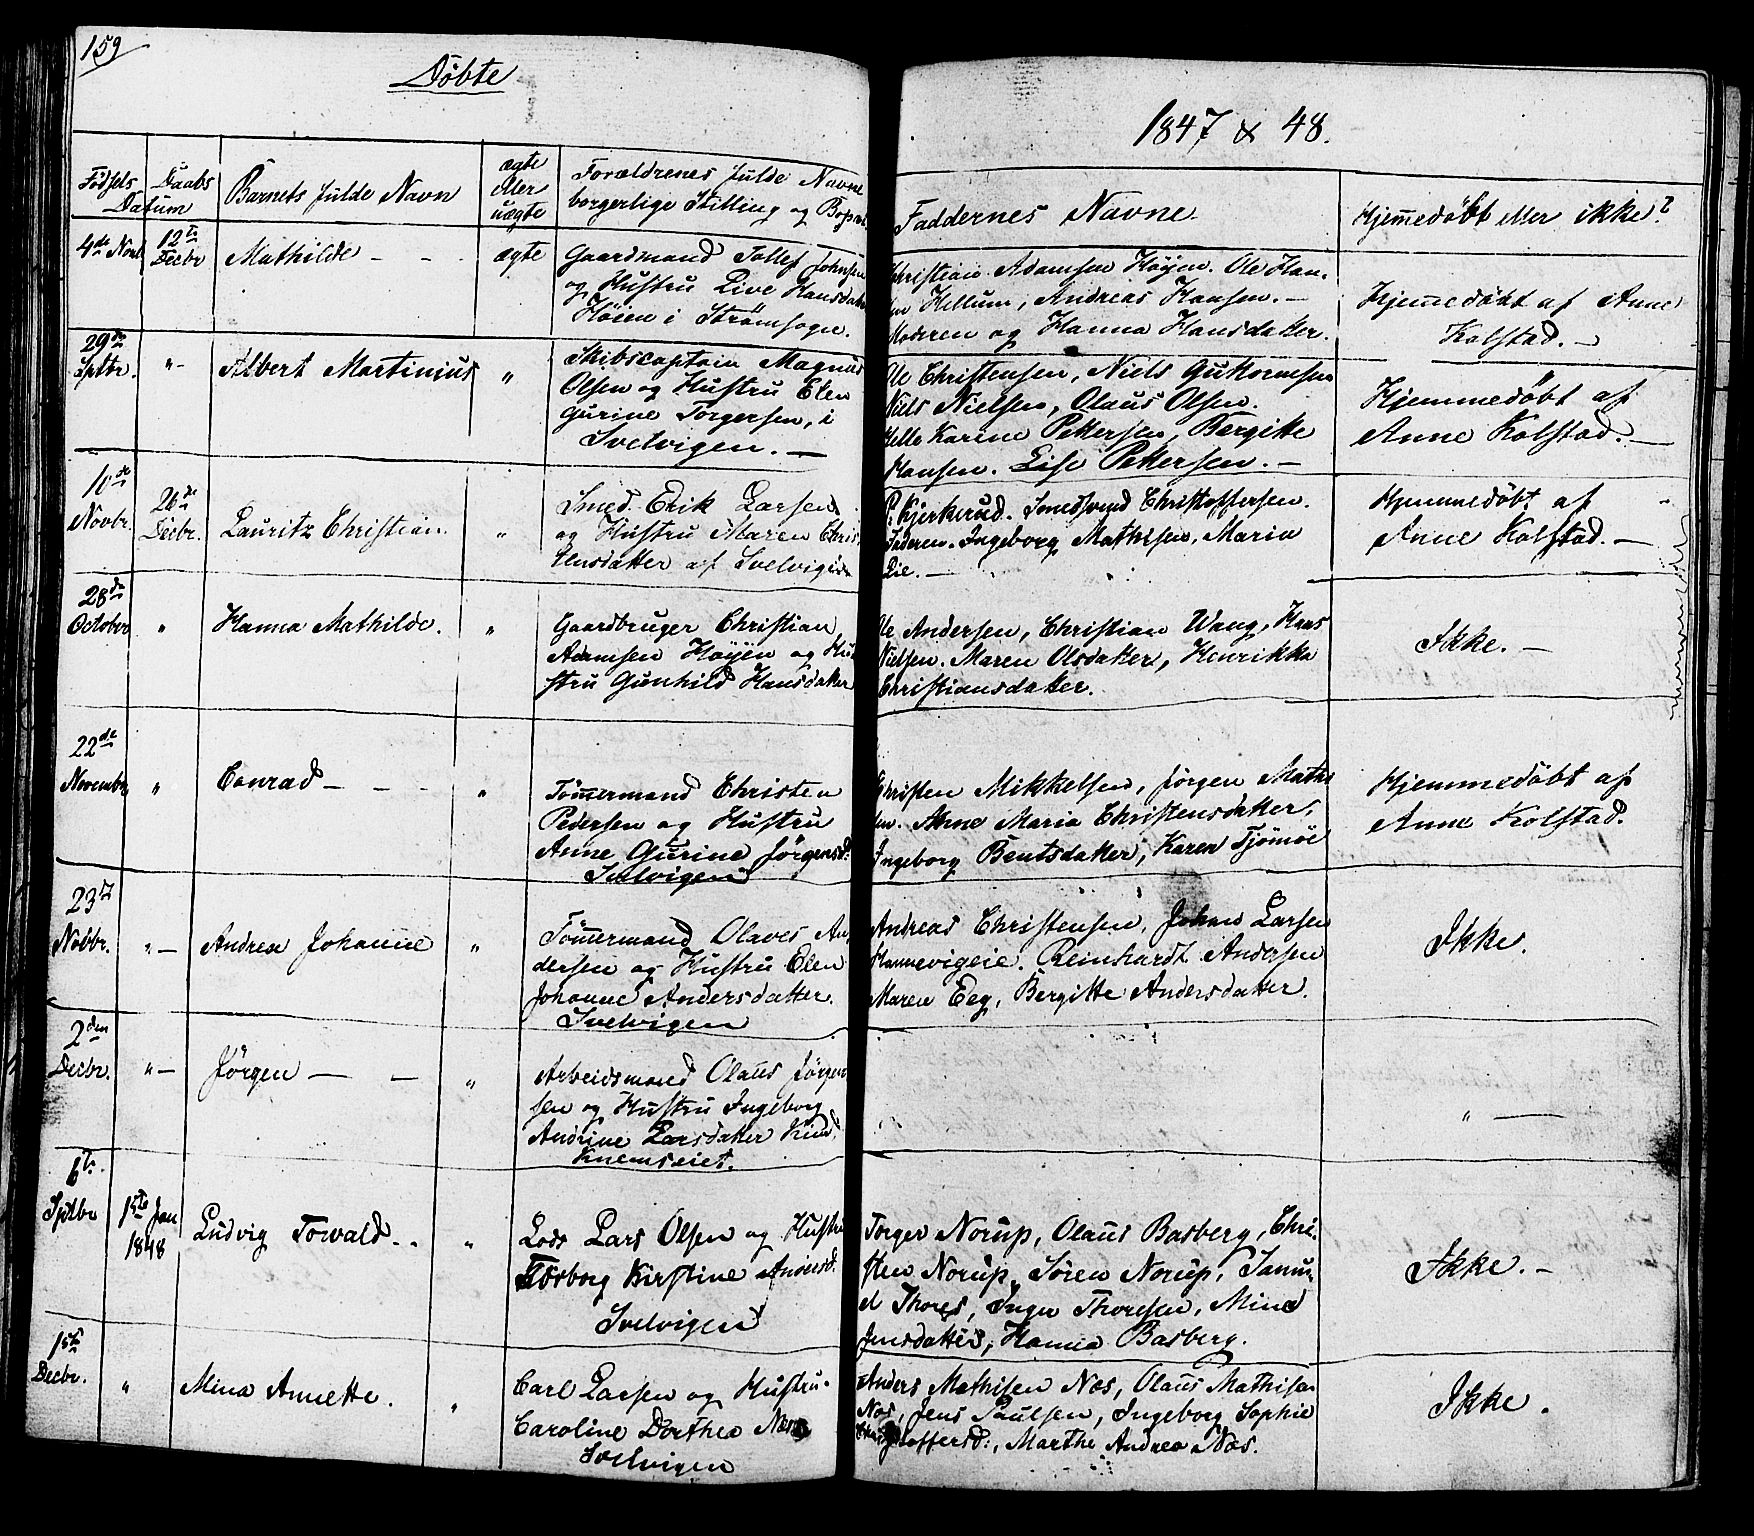 159
Döbte
1847 & 48.
Födsels Daabs
Datum
Barnets fulde Navn
ægte
eller
uægte
Forældrenes fulde Navne
borgerlige Stilling og Bopæl
Faddernes Navne.
Hjemmedöbt eller ikke?
4de Novbr 12te Decbr Mathilde - - ægte
Gaardmand Tollef Johnsen
og Hustru Live Hansdatter
Höien i Strömsogn.
Christian Adamsen Höyen. Ole Han-
sen Hellum, Andreas Hansen. -
Moderen og Hanna Hansdatter.
Hjemmedöbt af Anne
Kolstad. -
29de Sptbr. "- Albert Martinius "
Skibscaptain Magnus
Olsen og Hustru Elen
Gurine Torgersen, i
Svelvigen. -
Ole Christensen, Niels Guttormsen
Niels Nielsen, Olaus Olsen.
Helle Karine Pettersen, Bergitte
Hansen. Lise Pettersen. -
Hjemmedöbt af
Anne Kolstad. -
10de Novbr. 26de Decbr. Lauritz Christian. "
Smed Erik Larsen
og Hustru Maren Chris-
tensdatter af Svelvigen
P. Kjerkerud. Smedsvend Christoffersen.
Faderen. Ingeborg Mathisen, Maria
Lie. -
Hjemmedöbt af
Anne Kolstad. -
28de October " Hanna Mathilde. "
Gaardbruger Christian
Adamsen Höyen og Hu-
stru Gunhild Hansdatter
Ole Andersen, Christian Wang, Hans
Nielsen. Maren Olsdatter, Henrikka
Christiansdatter.
Ikke. -
22de November " Conrad - - - "
Tömmermand Christen
Pedersen og Hustru
Anne Gurine Jörgensd:
Svelvigen
Christen Mikkelsen, Jörgen Mathi
sen. Anne Maria Christensdatter,
Ingeborg Bentsdatter, Karen Tjömöe
Hjemmedöbt af
Anne Kolstad.
23de Novbr. "- Andrea Johanne "
Tömmermand Olaves An-
dersen og Hustru Elen
Johanne Andersdatter.
Svelvigen
Andreas Christensen, Johan Larsen
Hannevigeie. Reinhardt Andersen
Maren Eeg, Bergitte Andersdatter.
Ikke.
2den Decbr. "- Jörgen - - "
Arbeidsmand Olaus Jörgen
sen og Hustru Ingeborg
Andrine Larsdatter
Knemseiet.
" -
6te Sptbr 1ste Jan 1848 Ludvig Torvald. - "
Lods Lars Olsen og Hustru
Torborg Kirstine Andersd.
Svelvigen
Torger Norup, Olaus Basberg, Chri-
sten Norup, Sören Norup, Samu-
el Thores, Inger Thoresen, Mina
Jensdatter, Hanna Basberg.
Ikke. -
1ste Decbr. " Mina Annette. "
Carl Larsen og Hustru
Caroline Dorthea Næs
Svelvigen
Anders Mathisen Næs, Olaus Mathisen
Næs, Jens Paulsen, Ingeborg Sophie
Christoffersd:, Marthe Andrea Næs.
Ikke.